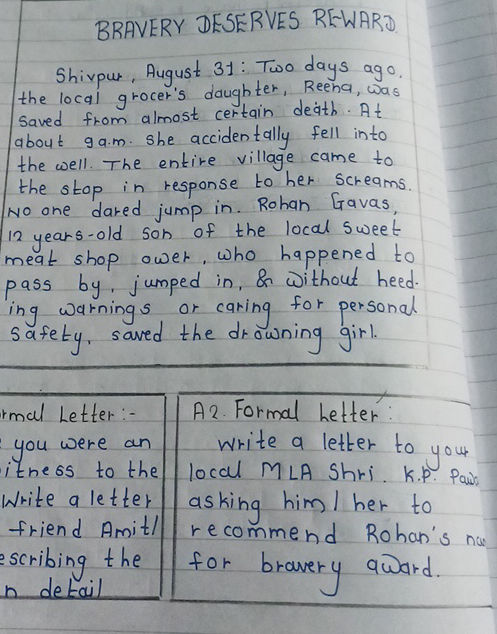 BRAVERY DESERVES REWARD
Shivpur, August 31: Two days ago,
the local grocer's daughter, Reena, was
saved from almost certain death. At
about 9a.m. she accidentally fell into
the well. The entire village came to
the stop in response to her screams.
No one dared jump in. Rohan Gavas,
12 years-old son of the local sweet
meat shop ower, who happened to
pass by, jumped in, & without heed-
ing warnings or caring for personal
safety, saved the drowning girl.
rmal Letter:-
you were an
itness to the
Write a letter
friend Amit/
escribing the
n detail
A2. Formal Letter:
Write a letter to your
local MLA Shri. K.P.
asking him/her to
recommend Rohan's
for bravery award.